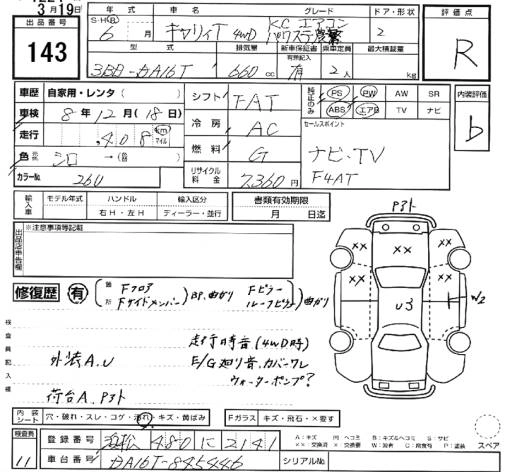 3月19日
出品番号
143
年式
車名
グレード
ドア・形状
評価点
S・H・R
6
月
キャリィT 4WD
KC エアコン
パワステ農繁
2
R
型式
排気量
新車保証書
乗車定員
最大積載量
有無記入
3BD-DA16T
660 cc
有
2人
kg
車歴
自家用・レンタ
シフト
FAT
純正のみ
PS
PW
AW
SR
ABS
エアB
TV
ナビ
内装評価
b
車検
8年12月(18日)
走行
408
km
マイル
冷房
AC
セールスポイント
ナビ・TV
F4AT
色
シロ
燃料
G
カラーNo
26U
リサイクル料金
7360円
輸入車
モデル年式
ハンドル
輸入区分
右H・左H
ディーラー・並行
書類有効期限
月
日迄
出品店申告欄
※注意事項等記載
修復歴
有
箇所
Fフロア
Fサイドメンバー
BP、曲がり
Fピラー
ルーフピラー
曲がり
検査員記入欄
外装A.U
荷台A、P3ト
走行時音(4WD時)
E/G廻り音、カバークレ
ウォーターポンプ?
P3ト
××
××
××
××
××
U3
W2
内装シート
穴・破れ・スレ・コゲ・汚れ・キズ・黄ばみ
Fガラス
キズ・飛石・×要す
スペア
検査員
11
登録番号
浜松 480 に 2141
車台番号
DA16T-845446
シリアルNo.